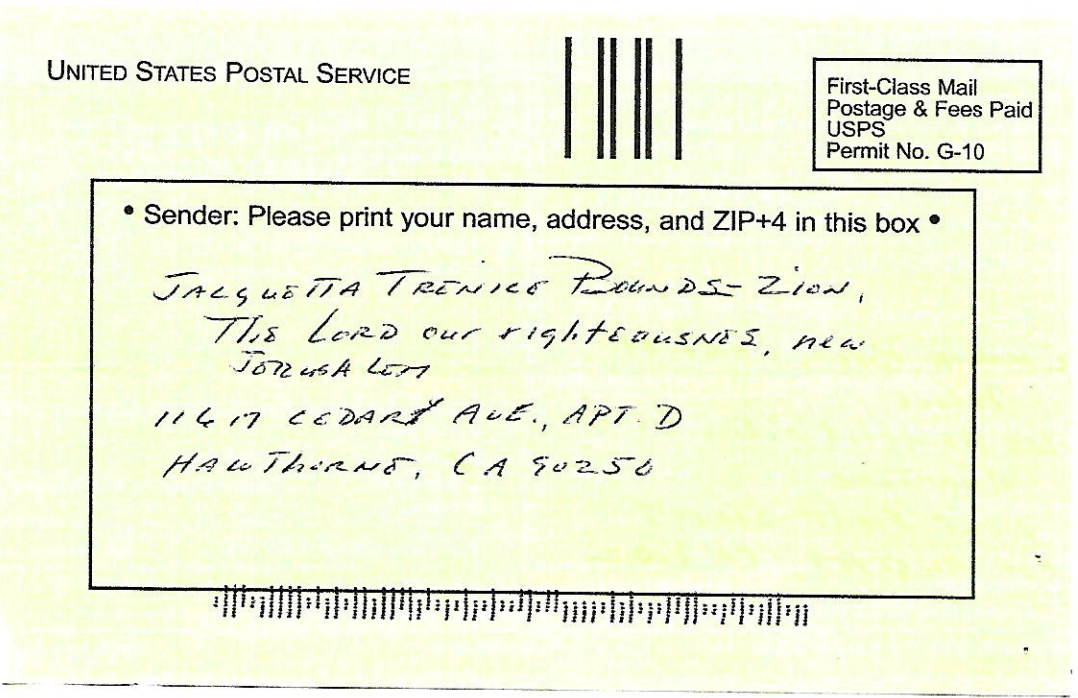 UNITED STATES POSTAL SERVICE
First-Class Mail
Postage & Fees Paid
USPS
Permit No. G-10
• Sender: Please print your name, address, and ZIP+4 in this box •
JACQUETTA TRENICE POUNDS-ZION,
THE LORD our righteousnes, new
JERUSALEM
11617 CEDAR AVE., APT. D
HAWTHORNE, CA 90250